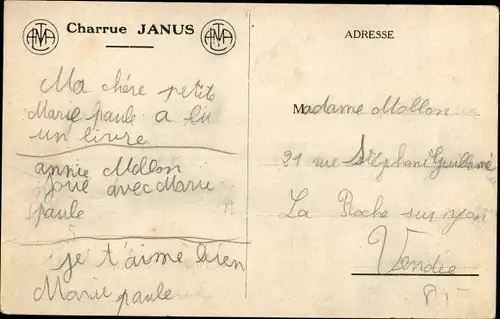 AMA Charrue JANUS AMA
Ma chère petite
Marie paule a lu
un livre
annie Mollon
joue avec Marie
paule
je t'aime bien
Marie paule
ADRESSE
Madame Mollon
21 rue Stéphane Guillemé
La Roche sur yon
Vendée